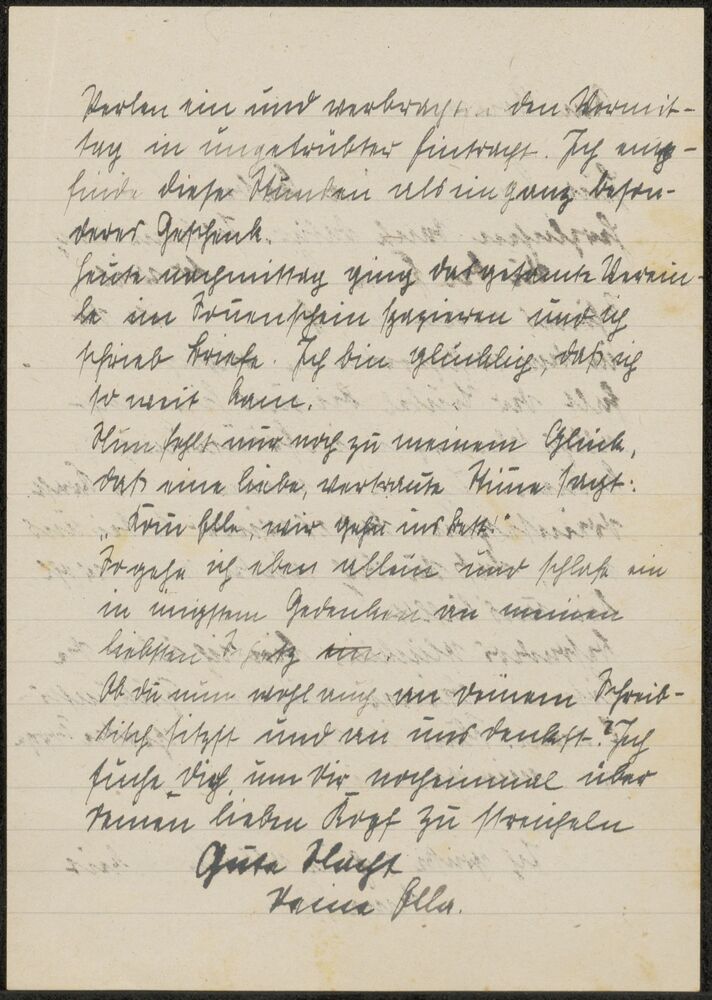 Perlen ein und verbrachten den Vormit-
tag in ungetrübter Eintracht. Ich emp-
finde diese Stunden als ein ganz beson-
deres Geschenk.
Heute nachmittag ging das gesamte Verein-
le im Sonnenschein spazieren und ich
schrieb Briefe. Ich bin glücklich, daß ich
so weit kam.
Nun fehlt nur noch zu meinem Glück,
daß eine liebe, vertraute Stimme sagt:
„Komm Ella, wir gehn ins Bett."
So gehe ich eben allein und schlafe ein
in innigstem Gedenken an meinen
liebsten Schatz ein.
Ob du nun wohl auch an deinem Schreib-
tisch sitzst und an uns denkst? Ich
suche Dich, um Dir nocheinmal über
Deinen lieben Kopf zu streicheln
Gute Nacht
Deine Ella.